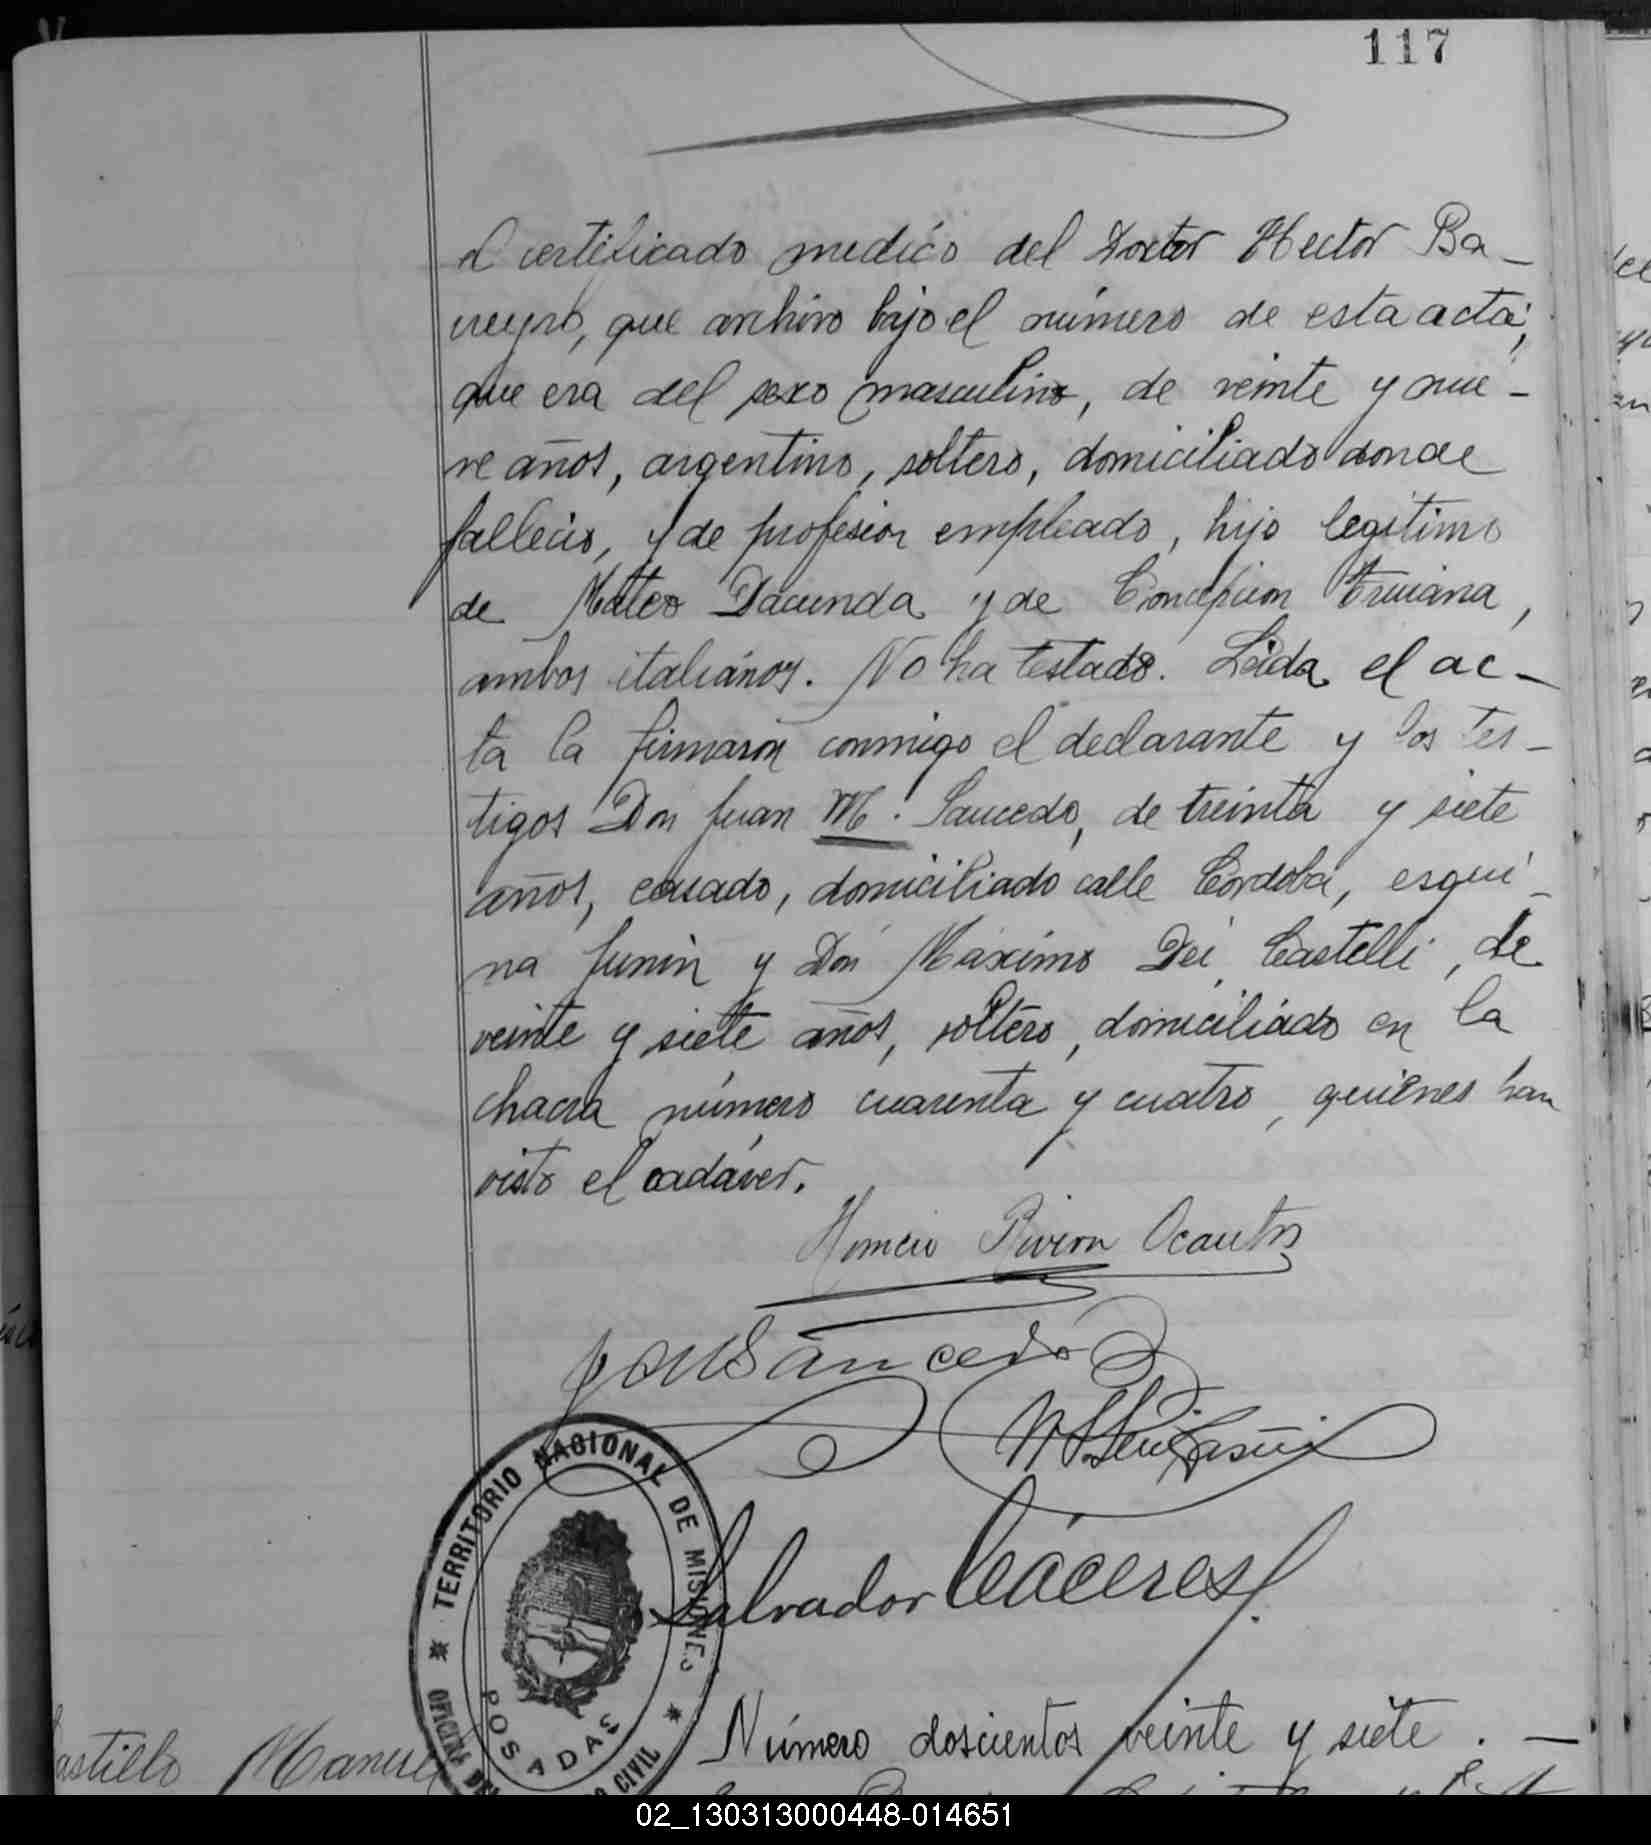 117
el certificado medico del Doctor Hector Ba-
rreyro, que archivo bajo el número de esta acta;
que era del sexo masculino, de veinte y nue-
ve años, argentino, soltero, domiciliado donde
fallecio, y de profesion empleado, hijo legitimo
de Mateo Dacunda y de Concepcion Truiana,
ambos italianos. No ha testado. Leida el ac-
ta la firmaron conmigo el declarante y los tes-
tigos Don Juan M. Saucedo, de treinta y siete
años, casado, domiciliado calle Córdoba, esqui-
na Junin y Don Máximo Dei Castelli, de
veinte y siete años, soltero, domiciliado en la
chacra número cuarenta y cuatro, quienes han
visto el cadáver.
Ocantos
Saucedo
Salvador Cáceres
TERRITORIO NACIONAL DE MISIONES
OFICINA DEL CIVIL
POSADAS
Número doscientos veinte y siete. —
Castillo Manuel
02_130313000448-014651